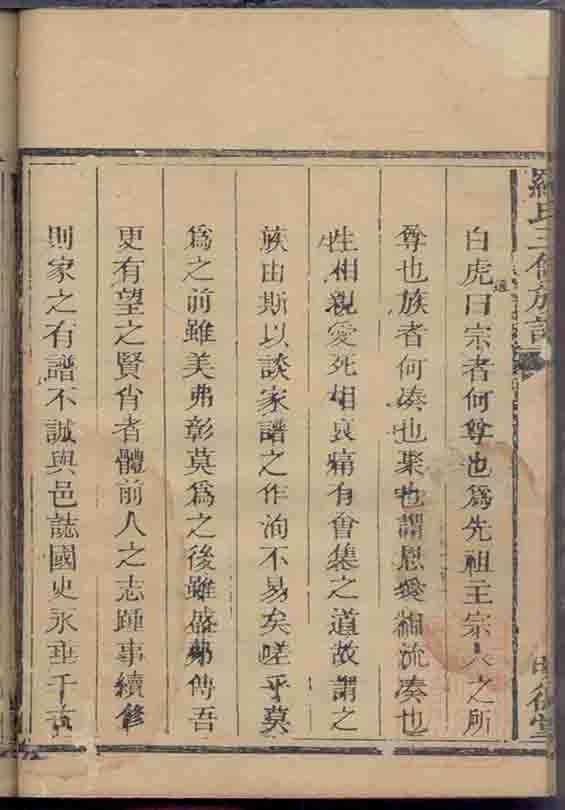 羅氏三修族譜
白虎通曰宗者何尊也為先祖主宗人之所
尊也族者何湊也聚也謂恩愛相流湊也
生相親愛死相哀痛有會集之道故謂之
族由斯以談家譜之作洵不易矣嗟乎莫
為之前雖美弗彰莫為之後雖盛弗傳吾
更有望之賢肖者體前人之志踵事續修
則家之有譜不誠與邑誌國史永垂千古